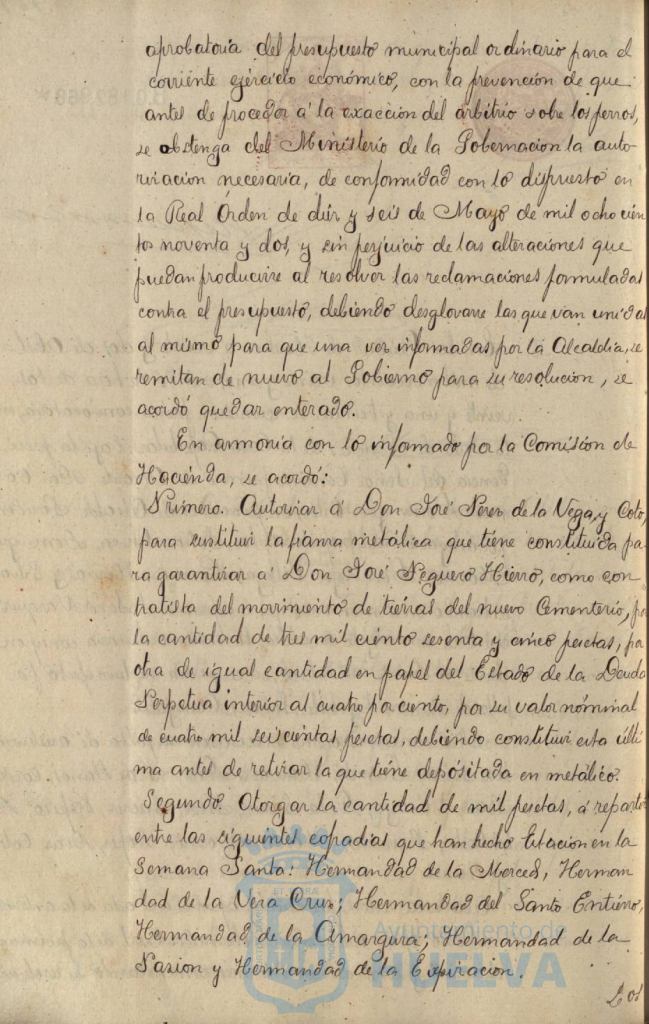 aprobatoria del presupuesto municipal ordinario para el
corriente ejercicio económico, con la prevención de que
antes de proceder á la exacción del arbitrio sobre los perros,
se obtenga del Ministerio de la Gobernacion la auto-
rización necesaria, de conformidad con lo dispuesto en
la Real Orden de diez y seis de Mayo de mil ochocien
tos noventa y dos, y sin perjuicio de las alteraciones que
puedan producirse al resolver las reclamaciones formuladas
contra el presupuesto, debiendo desglozarse las que van unidas
al mismo para que una vez informadas por la Alcaldia, se
remitan de nuevo al Gobierno para su resolucion, se
acordó quedar enterado.
En armonia con lo informado por la Comisión de
Hacienda, se acordó:
Primero. Autorizar á Don José Perez de la Vega, y Coto,
para sustituir la fianza metálica que tiene constituida pa
ra garantizar á Don José Seguero Hierro, como con
tratista del movimiento de tierras del nuevo Cementerio, por
la cantidad de tres mil ciento sesenta y cinco pesetas, por
otra de igual cantidad en papel del Estado de la Deuda
Perpetua interior al cuatro por ciento, por su valor nóminal
de cuatro mil seiscientas pesetas, debiendo constituir esta últi
ma antes de retirar la que tiene depósitada en metálico.
Segundo. Otorgar la cantidad de mil pesetas, á repartir
entre las siguientes cofradias que han hecho Estacion en la
Semana Santa: Hermandad de la Merced, Herman
dad de la Vera Cruz; Hermandad del Santo Entierro,
Hermandad de la Amargura; Hermandad de la
Pasion y Hermandad de la Expiracion.
Los
Ayuntamiento de
HUELVA